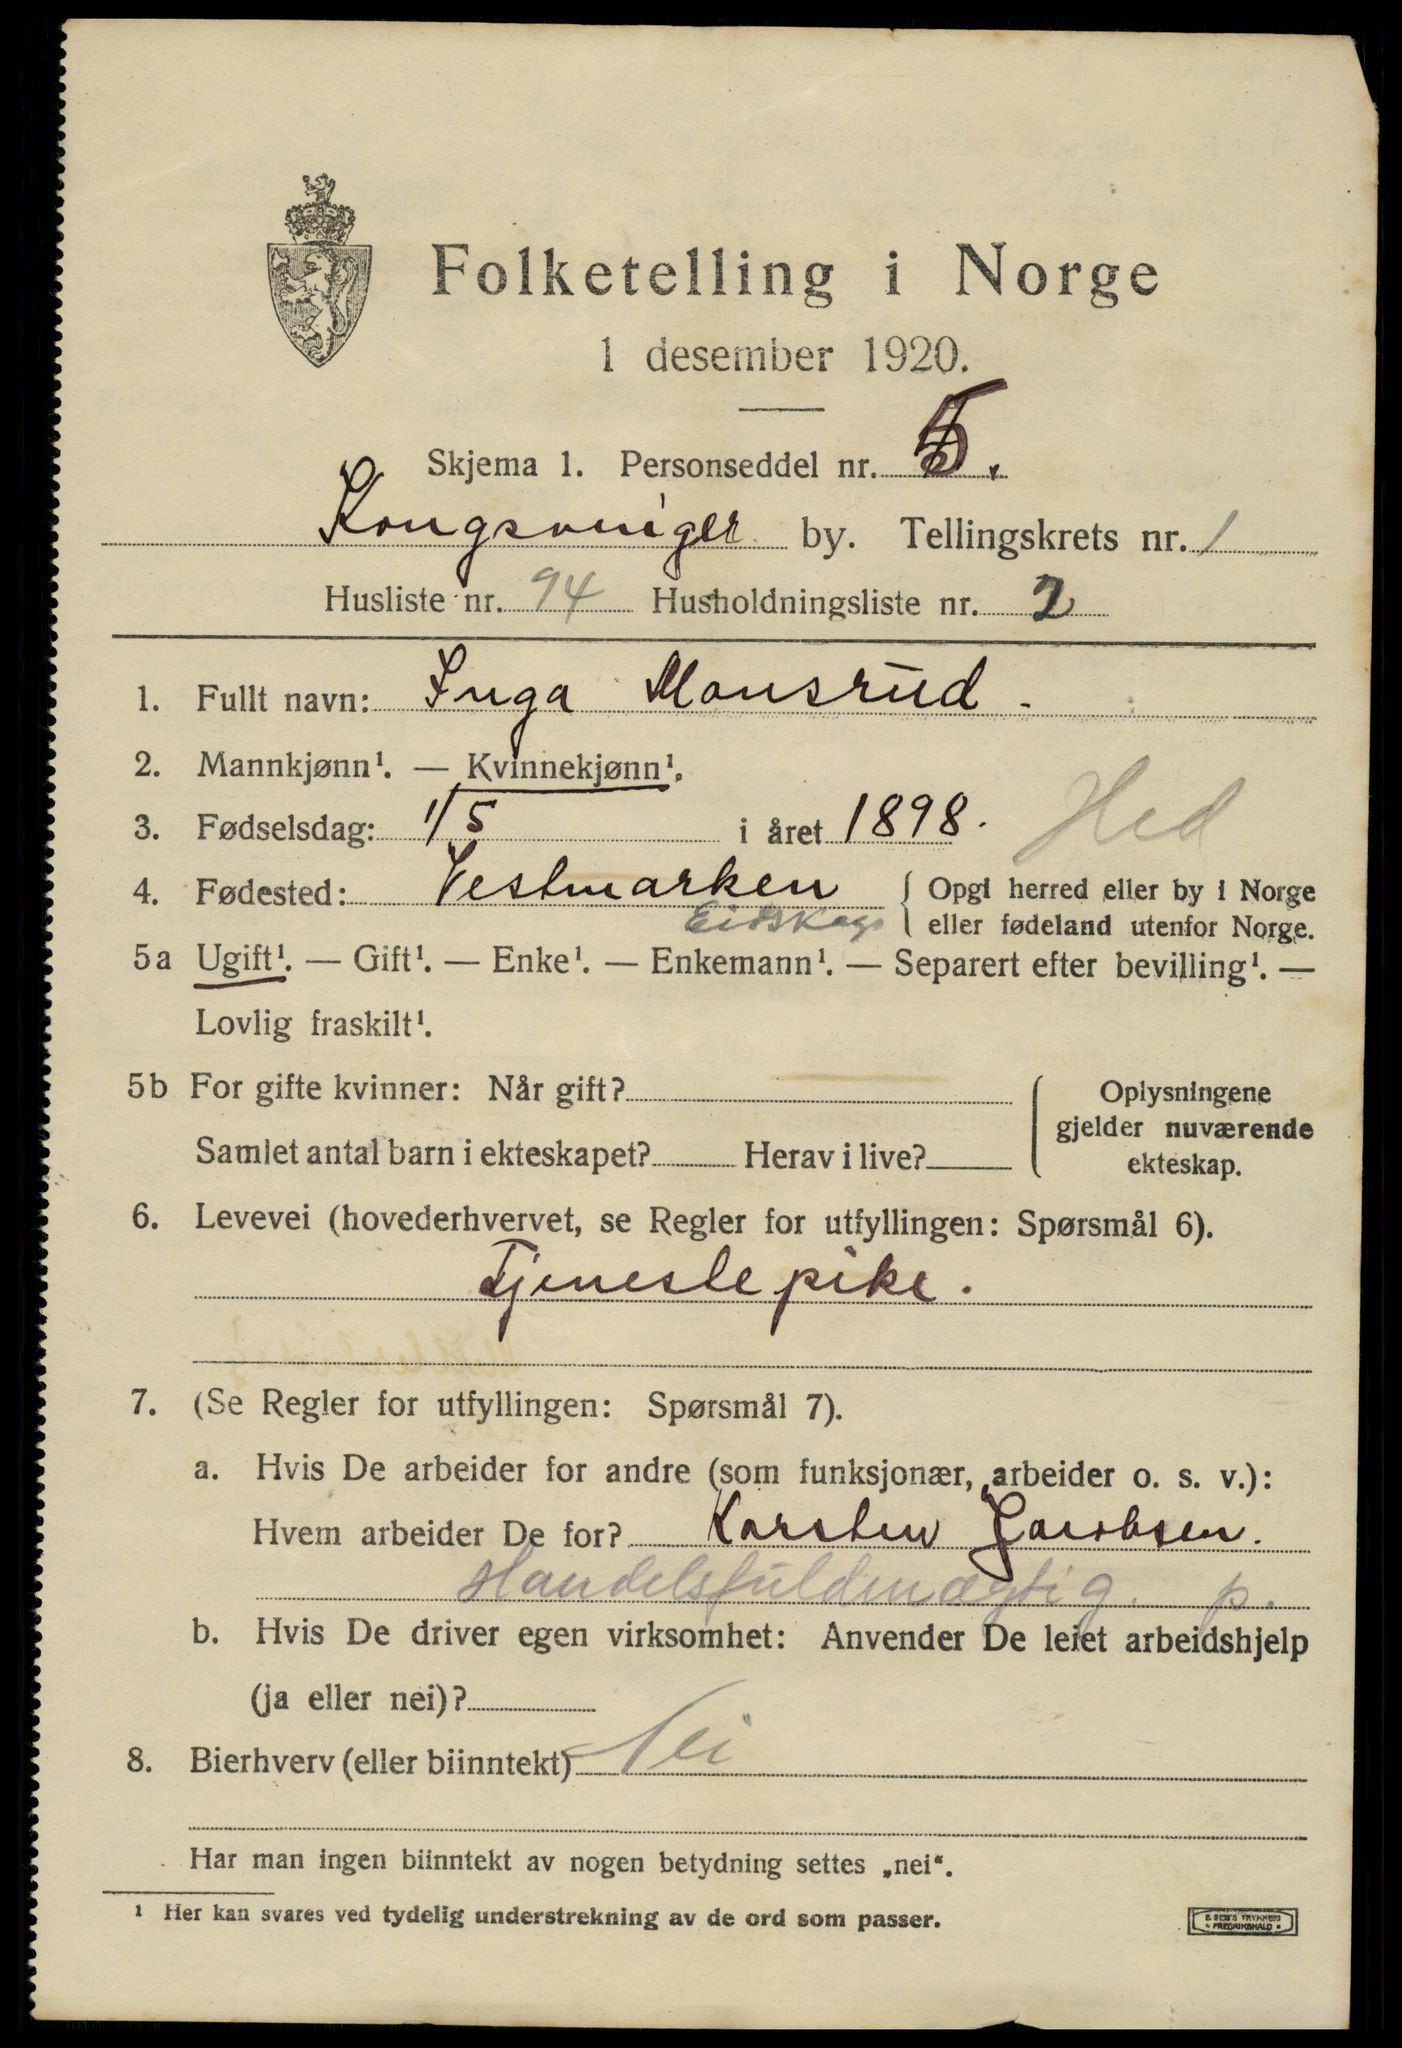 Folketelling i Norge
1 desember 1920.
Skjema 1. Personseddel nr. 5.
Kongsvinger by. Tellingskrets nr. 1
Husliste nr. 94 Husholdningsliste nr. 2
1. Fullt navn: Inga Monsrud.
2. Mannkjønn¹. — Kvinnekjønn¹.
3. Fødselsdag: 1/5 i året 1898. Hed
4. Fødested: Vestmarken { Opgi herred eller by i Norge
Eidskog { eller fødeland utenfor Norge.
5a Ugift¹. — Gift¹. — Enke¹. — Enkemann¹. — Separert efter bevilling¹. —
Lovlig fraskilt¹.
5b For gifte kvinner: Når gift? Oplysningene
gjelder nuværende
Samlet antal barn i ekteskapet? Herav i live? ekteskap.
6. Levevei (hovederhvervet, se Regler for utfyllingen: Spørsmål 6).
Tjenestepike.
7. (Se Regler for utfyllingen: Spørsmål 7).
a. Hvis De arbeider for andre (som funksjonær, arbeider o. s. v.):
Hvem arbeider De for? Karsten Jacobsen.
Handelsfuldmægtig. p.
b. Hvis De driver egen virksomhet: Anvender De leiet arbeidshjelp
(ja eller nei)?
8. Bierhverv (eller biinntekt) Nei
Har man ingen biinntekt av nogen betydning settes „nei“.
¹ Her kan svares ved tydelig understrekning av de ord som passer.
E. SEM'S TRYKKERI
FREDRIKSHALD